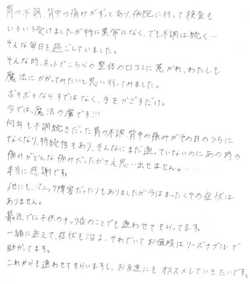 胃の不調、背中の痛みがずっとあり、病院に行って検査も
いろいろ受けましたが特に異常はなく、でも不調は続く…
そんな毎日を過ごしていました。
そんな時、ネットでこちらの整体の口コミに惹かれ、わたしも
魔法にかかってみたいと思い行ってみました。
ボキボキなどすではなく、手をかざすだけ。
今では、魔法の虜です…♡
何年も不調続きだった胃の不調、背中の痛みがその日のうちに
なくなり、持続性もあり、そんなにまだ通っていないのにあの時の
痛みがどんな痛みだったかさえ思い出せません。…
本当に感謝です。
他にも、パニック障害だったりもありましたが今はまったくその症状は
ありません。
最近では子供のチック症のことでも通わせてもらってます。
一緒に通えて、症状も治まり、それでいてお値段はリーズナブルで
助かってます。
これからも通わせてもらいますし、お友達にもオススメしていきたいです。